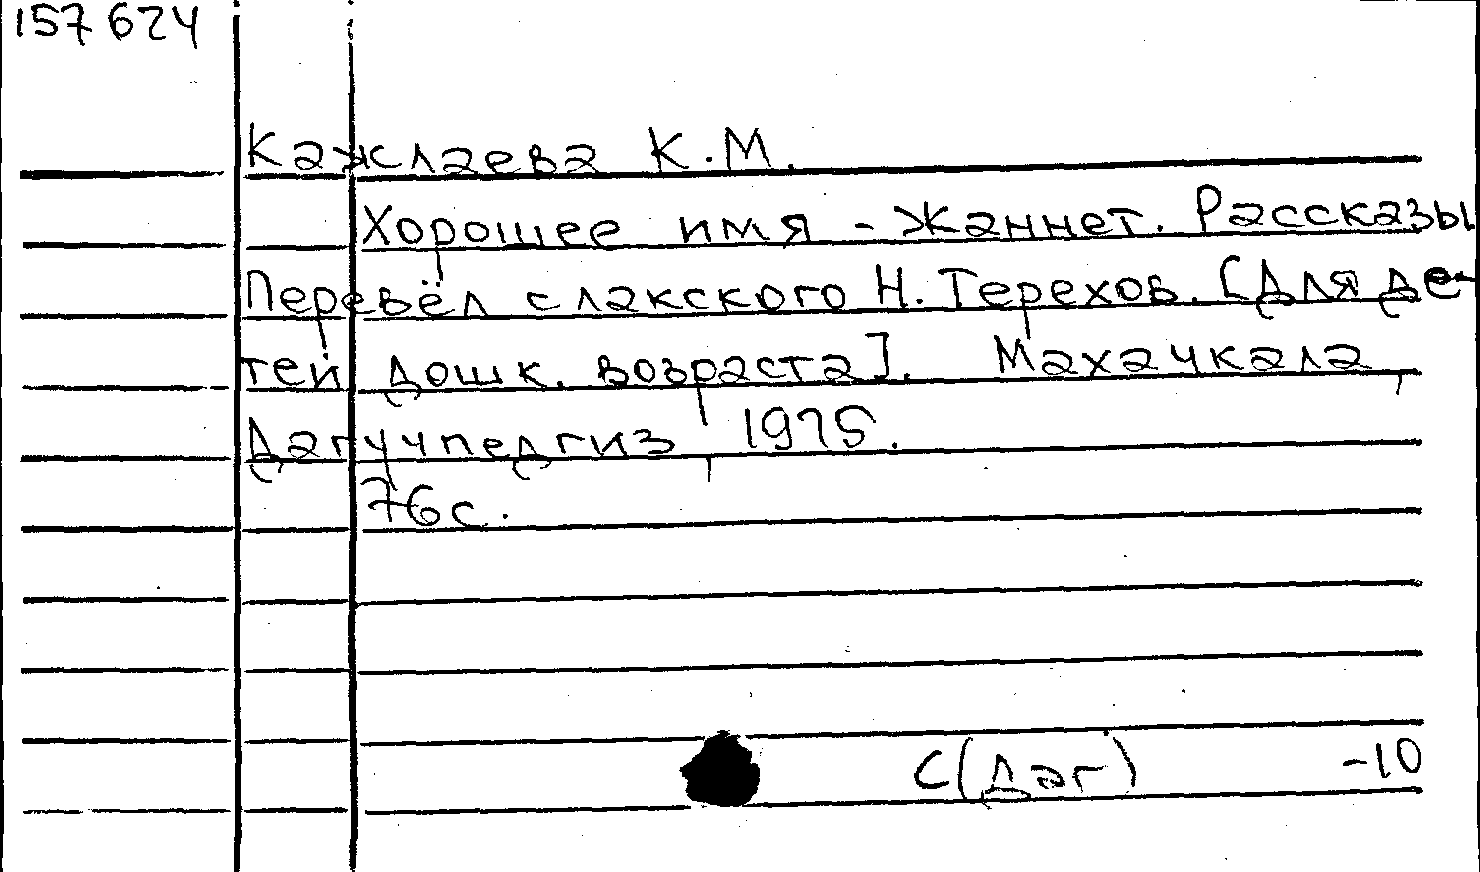 157624
Кажлаева К.М.
Хорошее имя - Жаннет. Рассказы
Перевёл с лакского Н. Терехов. [Для де-
тей дошк. возраста]. Махачкала,
Дагучпедгиз, 1975.
76с.
С(Даг) -10